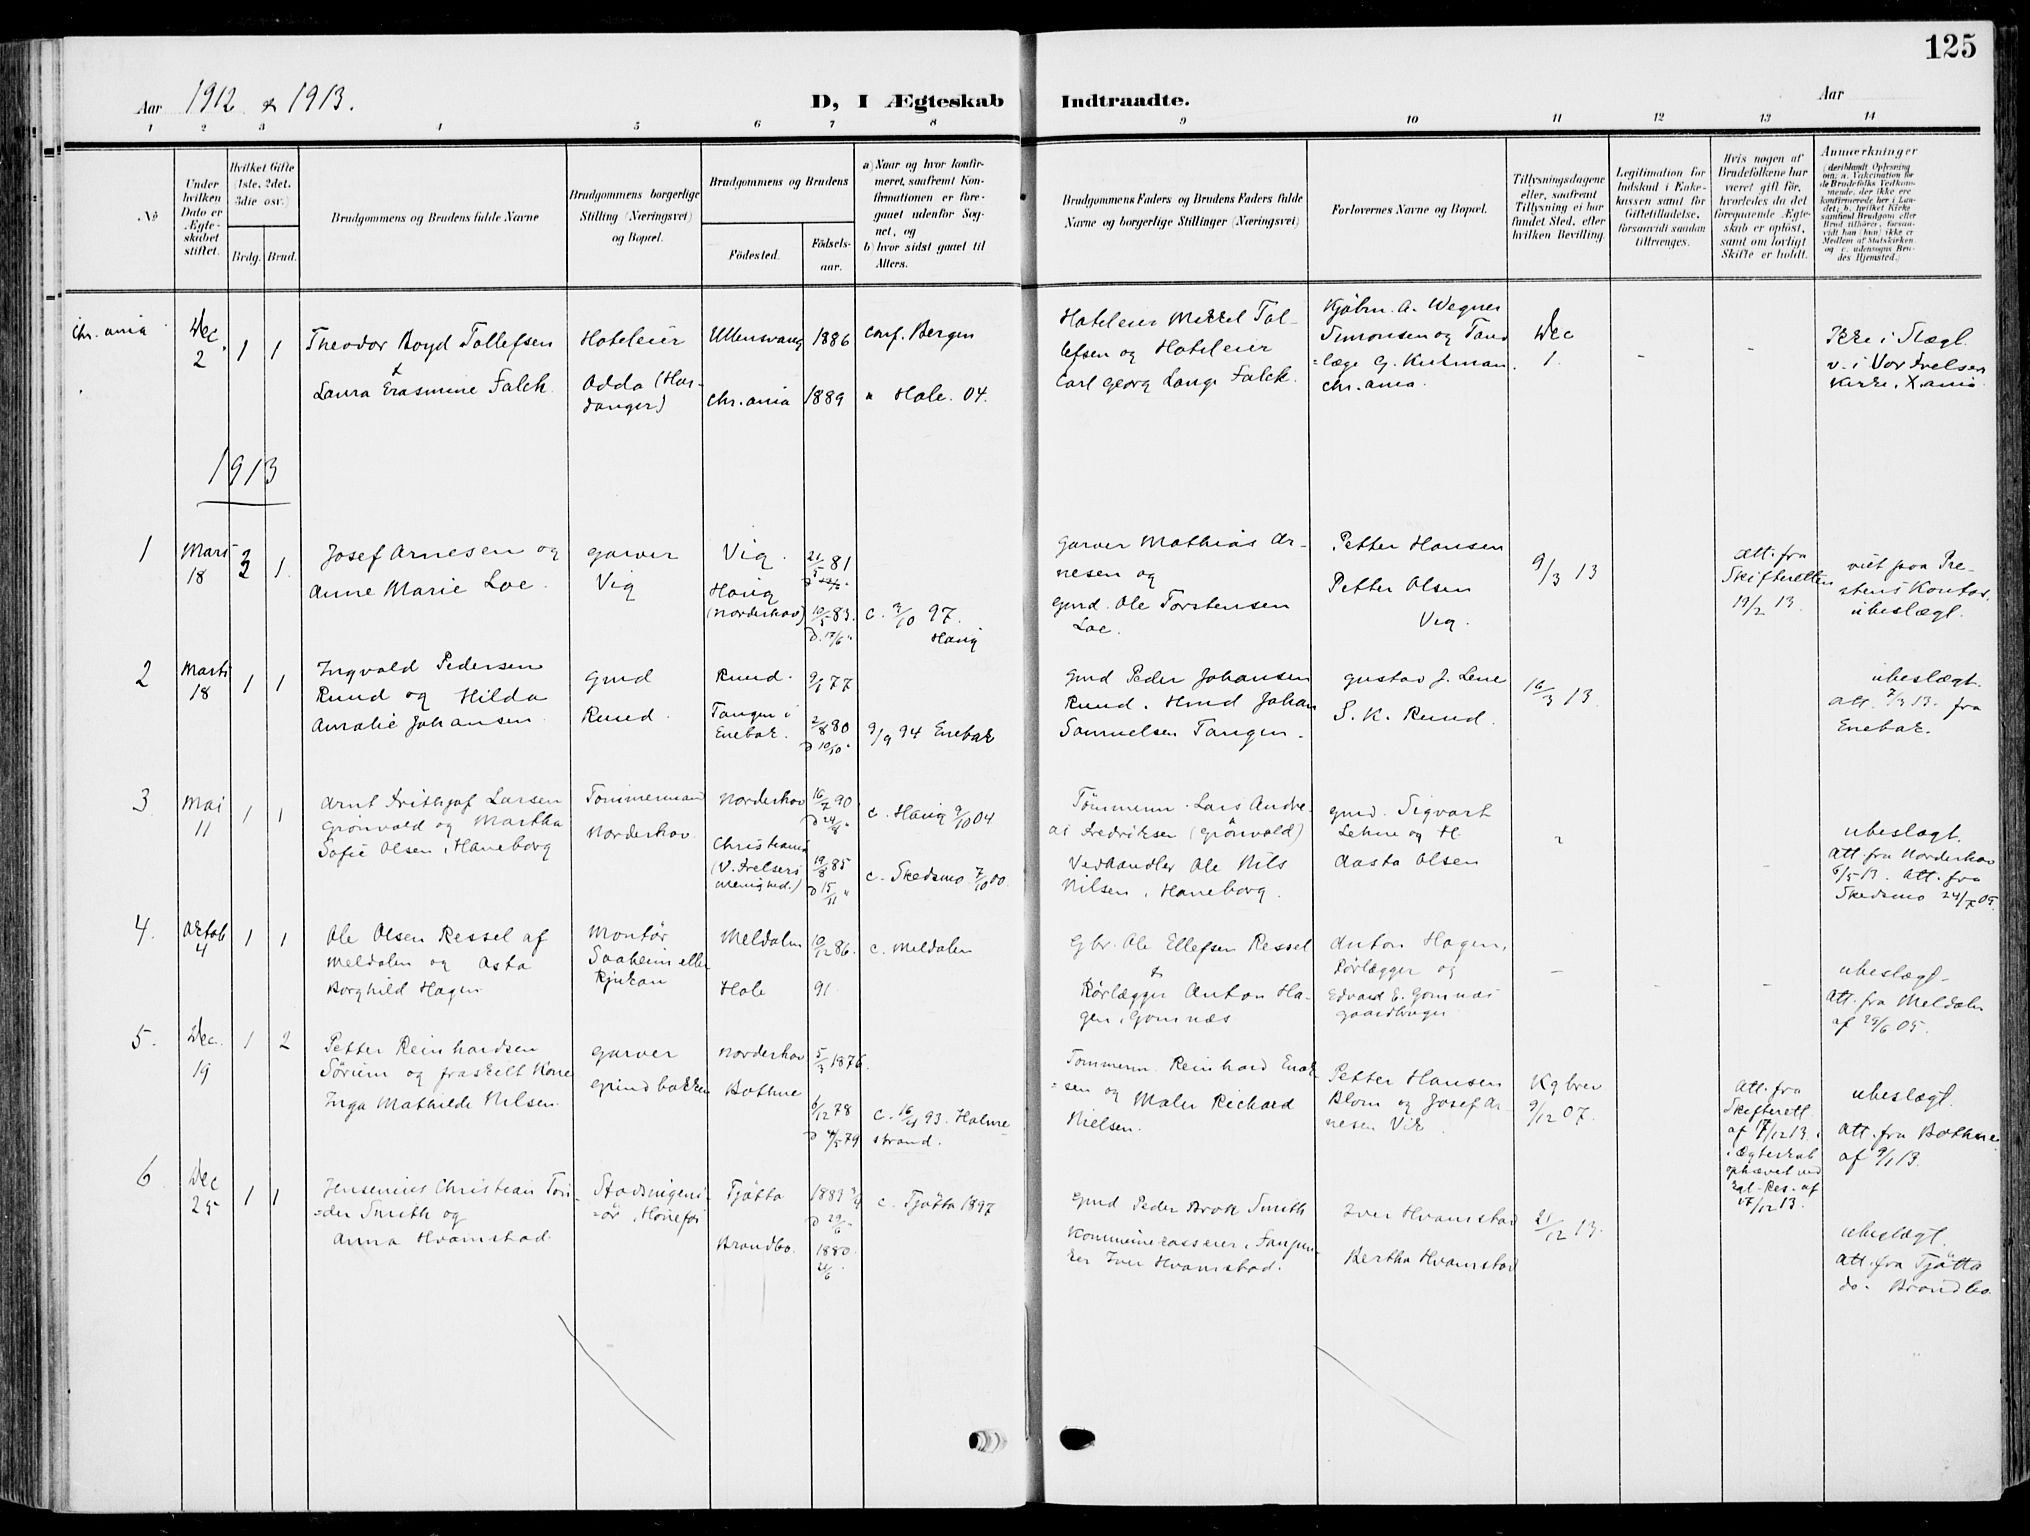 125
Aar 1912 & 1913.
D, I Ægteskab Indtraadte.
Aar
1 2 3 4 5 6 7 8 9 10 11 12 13 14
No
Under hvilken Dato er Ægteskabet stiftet.
Hvilket Gifte (1ste, 2det, 3die osv.)
Brdg. Brud.
Brudgommens og Brudens fulde Navne
Brudgommens borgerlige Stilling (Næringsvei) og Bopæl.
Brudgommens og Brudens
Födested.
Födselsaar.
a) Naar og hvor konfirmeret, saafremt Konfirmationen er foregaaet udenfor Sognet, og
b) hvor sidst gaaet til Alters.
Brudgommens Faders og Brudens Faders fulde Navne og borgerlige Stillinger (Næringsvei)
Forlovernes Navne og Bopæl.
Tillysningsdagene eller, saafremt Tillysning ei har fundet Sted, efter hvilken Bevilling
Legitimation for Indskud i Enkekassen samt for Giftetilladelse, forsaavidt saadan tiltrænges.
Hvis nogen af Brudefolkene har været gift för, hvorledes da det foregaaende Ægteskab er oplöst, samt om lovligt Skifte er holdt.
Anmærkninger
(deriblandt Oplysning om: a. Vaccination for de Brudefolks Vedkommende, der ikke ere konfirmerede her i Landet; b. hvilket Kirkesamfund Brudgom eller Brud tilhörer, forsaavidt han (hun) ikke er Medlem af Statskirken, og c. udensogns Brudes Hjemsted.)
Chr.ania
Dec 2. 1 1
Theodor Boyd Tollefsen
&
Laura Erasmine Falck
Hoteleier
Odda (Hardanger)
Ullensvang 1886 conf. Bergen
Chr.ania 1889 " Hole. 04.
Hoteleier Mikkel Tollefsen og Hoteleier
Carl Georg Lange Falck.
Kjøbm. A. Wegner
Simonsen og Tand
=læge G. Kulman.
Chr.ania.
Dec 1. - -
Ikke i Slægt
v. i Vor Frelsers
Kirke, X.ania
1913
1 Mars 18 2 1.
Josef Arnesen og
Anne Marie Loe.
Garver
Vig
Vig. 21/5 81
Haug
(Norderhov) 10/5 83.
D. 17/6 "
c. 3/10 97.
Haug
Garver Mathias Arnesen og
Gmd. Ole Torstensen
Loe.
Petter Hansen
Petter Olsen
Vig.
9/3 13
Att. fra
Skifteretten
19/2 13.
viet paa Prestens Kontor.
ubeslægt.
2 Marts 18 1 1
Ingvald Pedersen
Rund og Hilda
Amalie Johansen.
Gmd
Rund.
Rund. 9/1 77
Tangen i
Enebak. 2/8 80
D 10/10 "
9/9 94 Enebak
Gmd Peder Johansen
Rund. Hmd Johan
Samuelsen Tangen.
Gustav J. Lene
S. K. Rund.
16/3 13.
ubeslægt.
Att. 7/3 13. fra
Enebak.
3 Mai 11 1 1
Arnt Frithjof Larsen
Grønvold og Martha
Sofie Olsen, Haneborg
Tømmermand
Norderhov.
Norderhov 16/7 90
D 24/8 "
Christiania
(V. Frelsers
menighed.) 19/8 85
D 15/11 "
c. Haug 2/10 04
c. Skedsmo 7/10 00.
Tømmerm. Lars Andreas Fredriksen (Grønvold)
Vedhandler Ole Nils
Nilsen, Haneborg.
Gmd. Sigvart
Lehne og H.
Aasta Olsen
" -
ubeslægt.
Att. fra Norderhov
6/5 13. Att. fra
Skedsmo 24/7 05.
4. Oktob 4 1 1
Ole Olsen Ressel af
Meldalen og Asta
Borghild Hagen
Montør
Saaheim eller
Rjukan
Meldalen 19/12 86.
Hole 91
c. Meldalen
Gbr. Ole Ellefsen Ressel
&
Rørlægger Anton Hagen, Gomnæs
Anton Hagen,
Rørlægger og
Edvard E. Gomnæs
gaardbruger
- - -
ubeslægt-
Att. fra Meldalen
af 29/6 05.
5. Dec. 19 1 2
Petter Reinhardsen
Sørum og fraskilt Kone
Inga Mathilde Nilsen.
Garver
Grindbakken
Norderhov 5/3 1876.
Bothne 6/12 78
D 4/5 79
c. 16/4 93. Holmestrand.
Tømmerm. Reinhard Enok
=sen og Maler Richard
Nielsen.
Petter Hansen
Blom og Josef Arnesen Vik
Kgbrev
9/12 07.
Att. fra
Skifterett
af 17/12 13.
i Ægteskab
ophævet ved
Kgl. Res. af
17/12 13.
ubeslægt.
Att. fra Bothne
af 9/1 13.
6 Dec 25 1 1
Jensenius Christian Ton
=der Smith og
Anna Hvamstad.
Stadsingeni-
=ør, Hønefos
Tjøtta 1883 3/4
D 29/6 "
Brandbo. 1880.
21/6
c. Tjøtta 1897
Gmd Peder Brok Smith
Kommunekasserer,
Iver Hvamstad.
Iver Hvamstad
Bertha Hvamstad
21/12 13.
ubeslægt.
Att. fra Tjøtta
do. Brandbo.